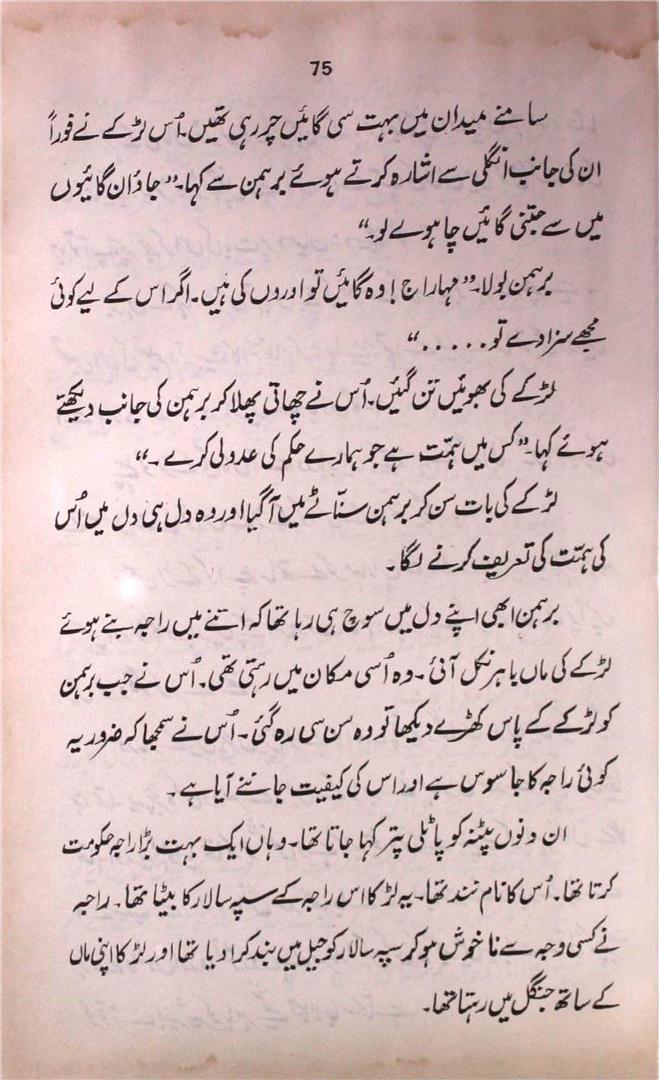 75
سامنے میدان میں بہت سی گائیں چر رہی تھیں۔ اُس لڑکے نے فوراً
ان کی جانب انگلی سے اشارہ کرتے ہوئے برہمن سے کہا۔ ”جاؤ ان گائیوں
میں سے جتنی گائیں چاہو لے لو۔“
برہمن بولا۔ ”مہاراج! وہ گائیں تو اوروں کی ہیں۔ اگر اس کے لیے کوئی
مجھے سزا دے تو.....“
لڑکے کی بھویں تن گئیں۔ اُس نے چھاتی پھلا کر برہمن کی جانب دیکھتے
ہوئے کہا۔ ”کس میں ہمّت ہے جو ہمارے حکم کی عدولی کرے۔“
لڑکے کی بات سن کر برہمن سنّاٹے میں آگیا اور وہ دل ہی دل میں اُس
کی ہمّت کی تعریف کرنے لگا۔
برہمن ابھی اپنے دل میں سوچ ہی رہا تھا کہ اتنے میں راجہ بنے ہوئے
لڑکے کی ماں باہر نکل آئی۔ وہ اُسی مکان میں رہتی تھی۔ اُس نے جب برہمن
کو لڑکے کے پاس کھڑے دیکھا تو وہ سن سی رہ گئی۔ اُس نے سمجھا کہ ضرور یہ
کوئی راجہ کا جاسوس ہے اور اس کی کیفیت جاننے آیا ہے۔
ان دنوں پٹنہ کو پاٹلی پتر کہا جاتا تھا۔ وہاں ایک بہت بڑا راجہ حکومت
کرتا تھا۔ اُس کا نام نند تھا۔ یہ لڑکا اس راجہ کے سپہ سالار کا بیٹا تھا۔ راجہ
نے کسی وجہ سے ناخوش ہو کر سپہ سالار کو جیل میں بند کرا دیا تھا اور لڑکا اپنی ماں
کے ساتھ جنگل میں رہتا تھا۔